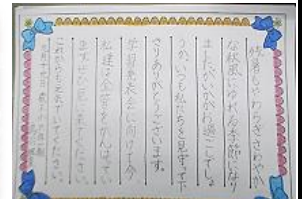 残暑もやわらぎさわやか
な秋風にゆれる季節になり
ましたがいかがお過ごしでしょ
うか。いつも私たちを見守って下
さりありがとうございます。
学習発表会に向けて今
私達は合奏をがんばってい
ます。ぜひ見にきてください。
これからも元気でいてください。